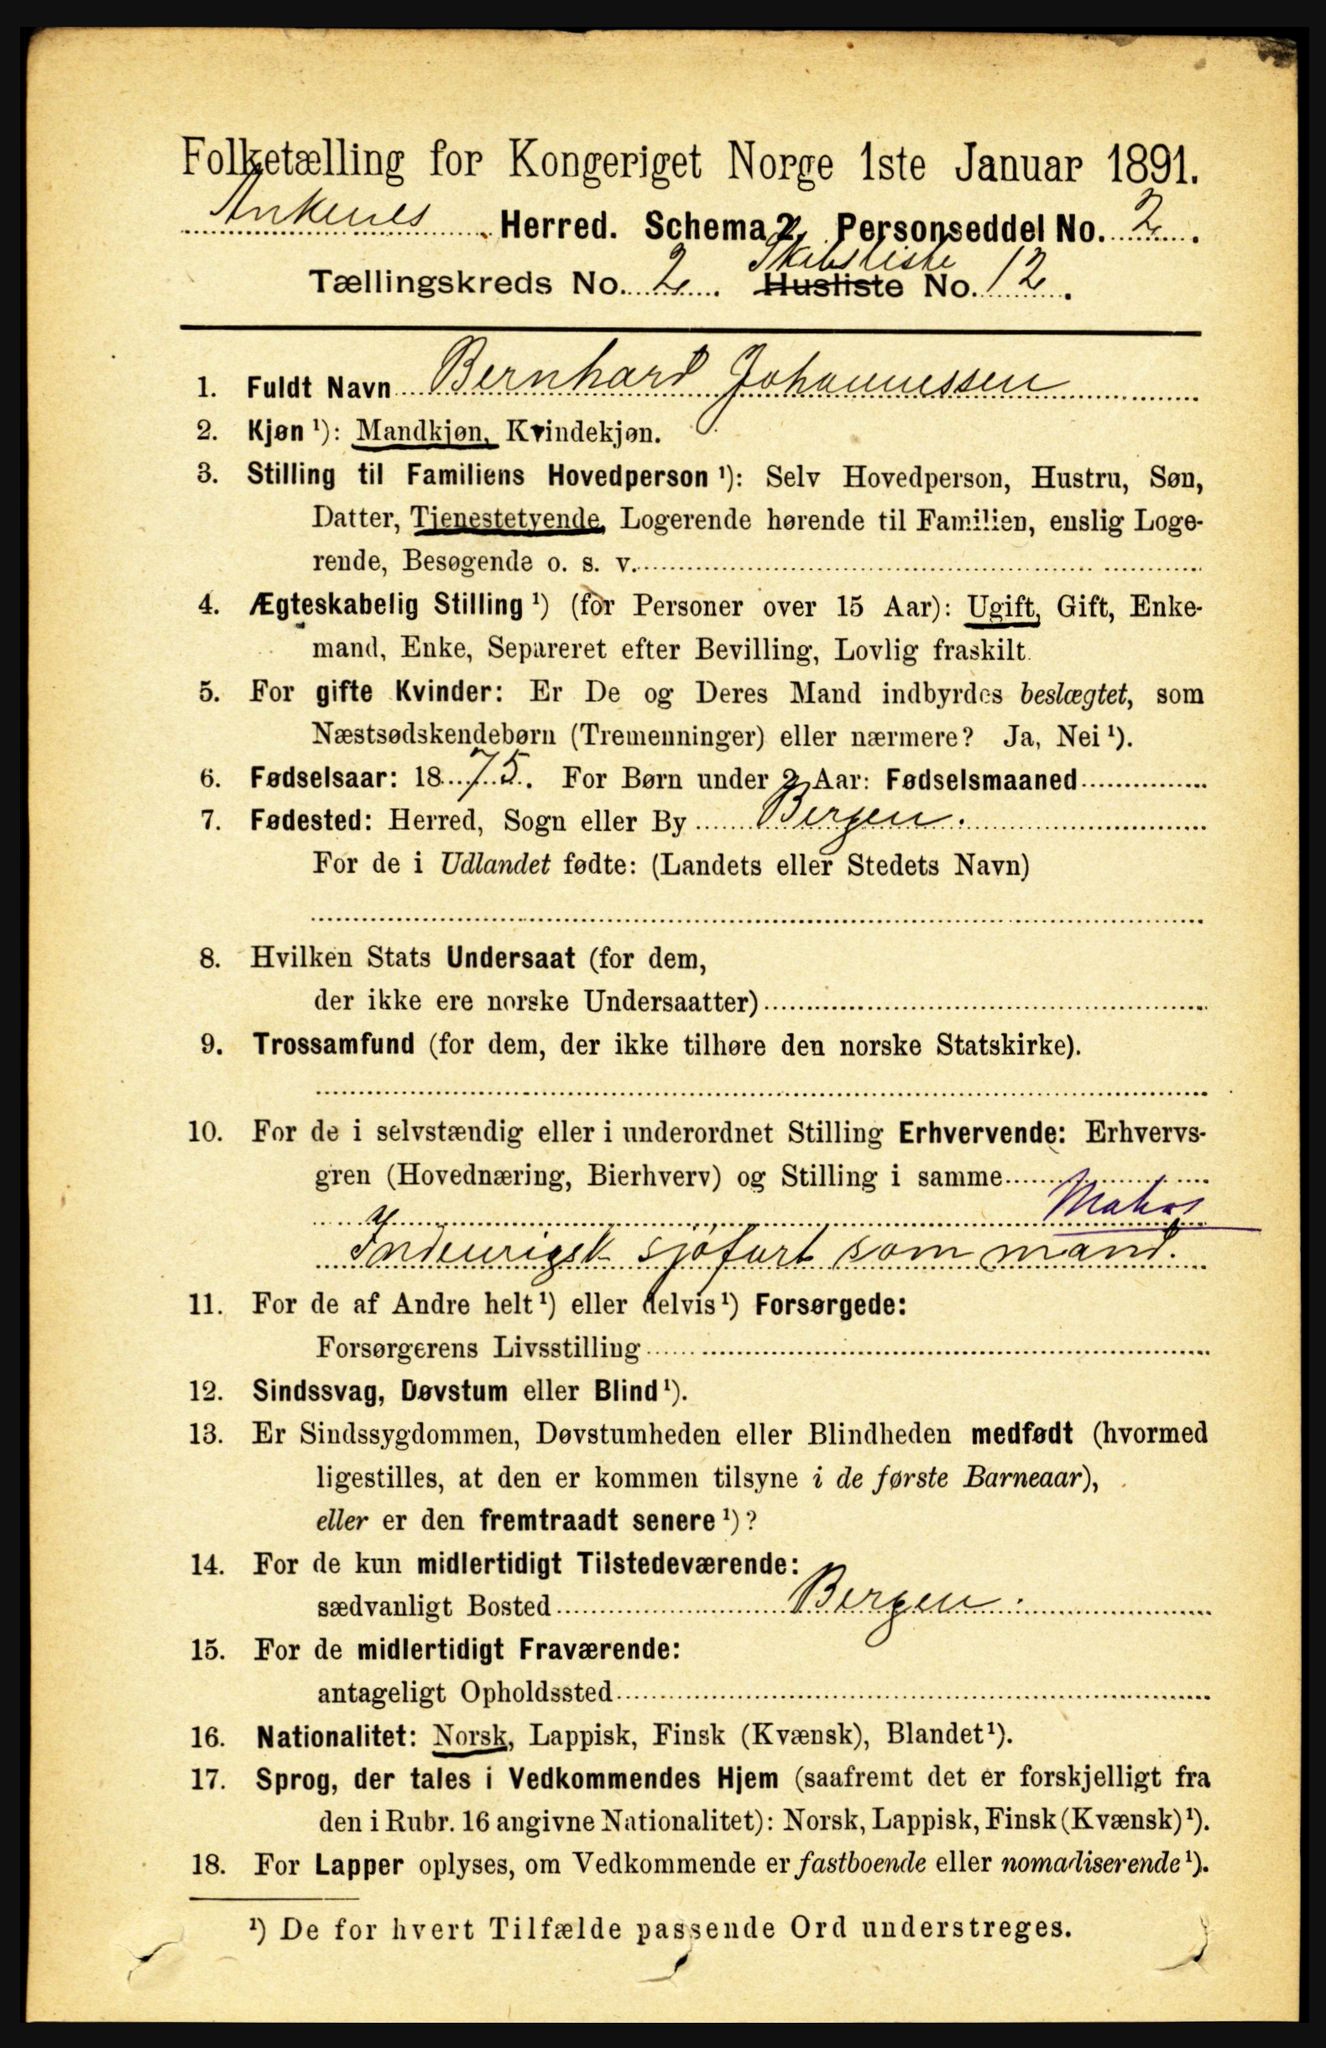 Folketælling for Kongeriget Norge 1ste Januar 1891.
Ankenes Herred. Schema 2. Personseddel No. 2.
Tællingskreds No. 2. Husliste Skibsliste No. 12.
1. Fuldt Navn Bernhard Johannessen
2. Kjøn ¹): Mandkjøn, Kvindekjøn.
3. Stilling til Familiens Hovedperson ¹): Selv Hovedperson, Hustru, Søn,
Datter, Tjenestetyende, Logerende hørende til Familien, enslig Loge-
rende, Besøgende o. s. v.
4. Ægteskabelig Stilling ¹) (for Personer over 15 Aar): Ugift, Gift, Enke-
mand, Enke, Separeret efter Bevilling, Lovlig fraskilt.
5. For gifte Kvinder: Er De og Deres Mand indbyrdes beslægtet, som
Næstsødskendebørn (Tremenninger) eller nærmere? Ja, Nei ¹).
6. Fødselsaar: 1875. For Børn under 2 Aar: Fødselsmaaned
7. Fødested: Herred, Sogn eller By Bergen.
For de i Udlandet fødte: (Landets eller Stedets Navn)
8. Hvilken Stats Undersaat (for dem,
der ikke ere norske Undersaatter)
9. Trossamfund (for dem, der ikke tilhøre den norske Statskirke).
10. For de i selvstændig eller i underordnet Stilling Erhvervende: Erhvervs-
gren (Hovednæring, Bierhverv) og Stilling i samme
Indenrigsk sjøfart som mand.
11. For de af Andre helt ¹) eller delvis ¹) Forsørgede:
Forsørgerens Livsstilling
12. Sindssvag, Døvstum eller Blind ¹).
13. Er Sindssygdommen, Døvstumheden eller Blindheden medfødt (hvormed
ligestilles, at den er kommen tilsyne i de første Barneaar),
eller er den fremtraadt senere ¹)?
14. For de kun midlertidigt Tilstedeværende:
sædvanligt Bosted Bergen.
15. For de midlertidigt Fraværende:
antageligt Opholdssted
16. Nationalitet: Norsk, Lappisk, Finsk (Kvænsk), Blandet ¹).
17. Sprog, der tales i Vedkommendes Hjem (saafremt det er forskjelligt fra
den i Rubr. 16 angivne Nationalitet): Norsk, Lappisk, Finsk (Kvænsk) ¹).
18. For Lapper oplyses, om Vedkommende er fastboende eller nomadiserende ¹).
¹) De for hvert Tilfælde passende Ord understreges.